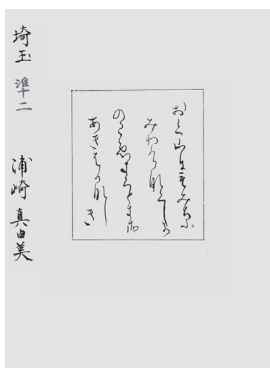 おく山にもみちふ
みわけ那くしか
のこゑきくときそ
あきはか那しき
埼玉 準二 浦崎 真由美